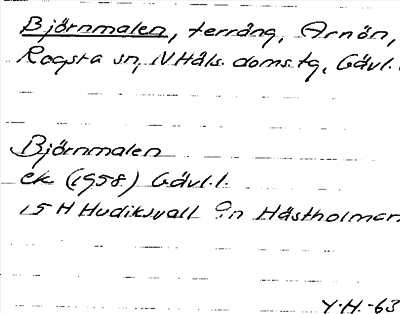 Björnmalen, terräng, Arnön,
Rogsta sn, N Häls. doms.tg, Gävl.
Björnmalen
ek (1958) Gävl.l.
15 H Hudiksvall Hästholmen
Y.H.-63